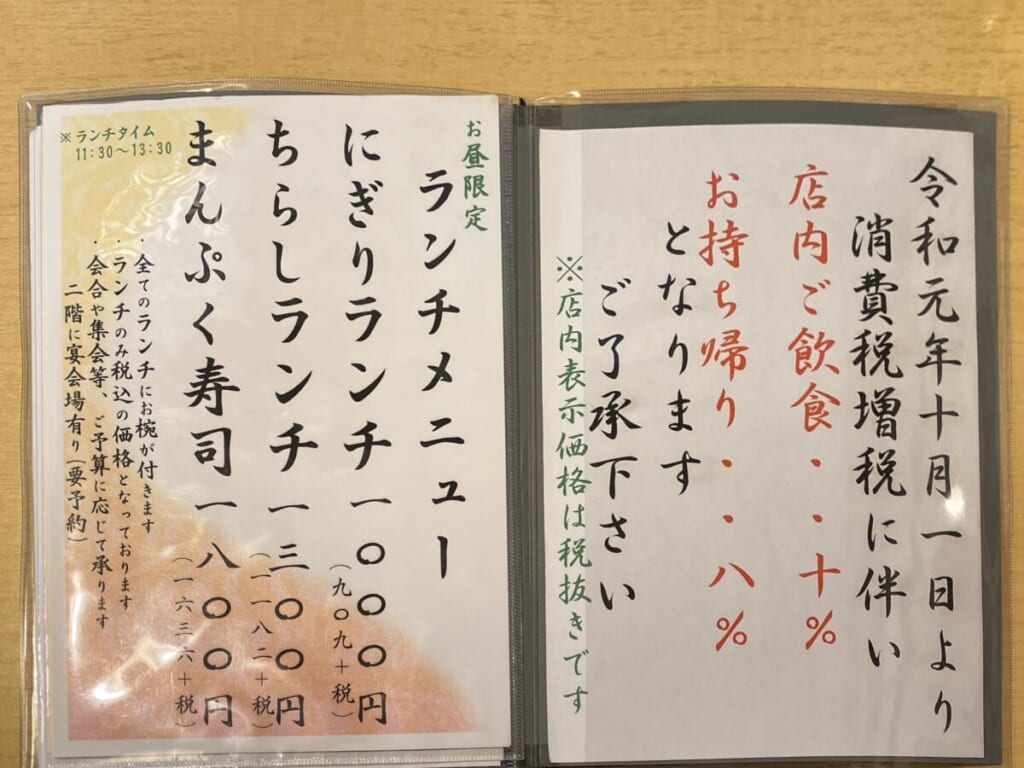 令和元年十月一日より
消費税増税に伴い
店内ご飲食・・十%
お持ち帰り・・八%
となります
ご了承下さい
※店内表示価格は税抜きです
お昼限定
ランチメニュー
にぎりランチ一〇〇〇円
(九〇九+税)
ちらしランチ一三〇〇円
(一一八二+税)
まんぷく寿司一八〇〇円
(一六三六+税)
※ランチタイム
11:30～13:30
・全てのランチにお椀が付きます
・ランチのみ税込の価格となっております
・会合や集会等、ご予算に応じて承ります
二階に宴会場有り(要予約)